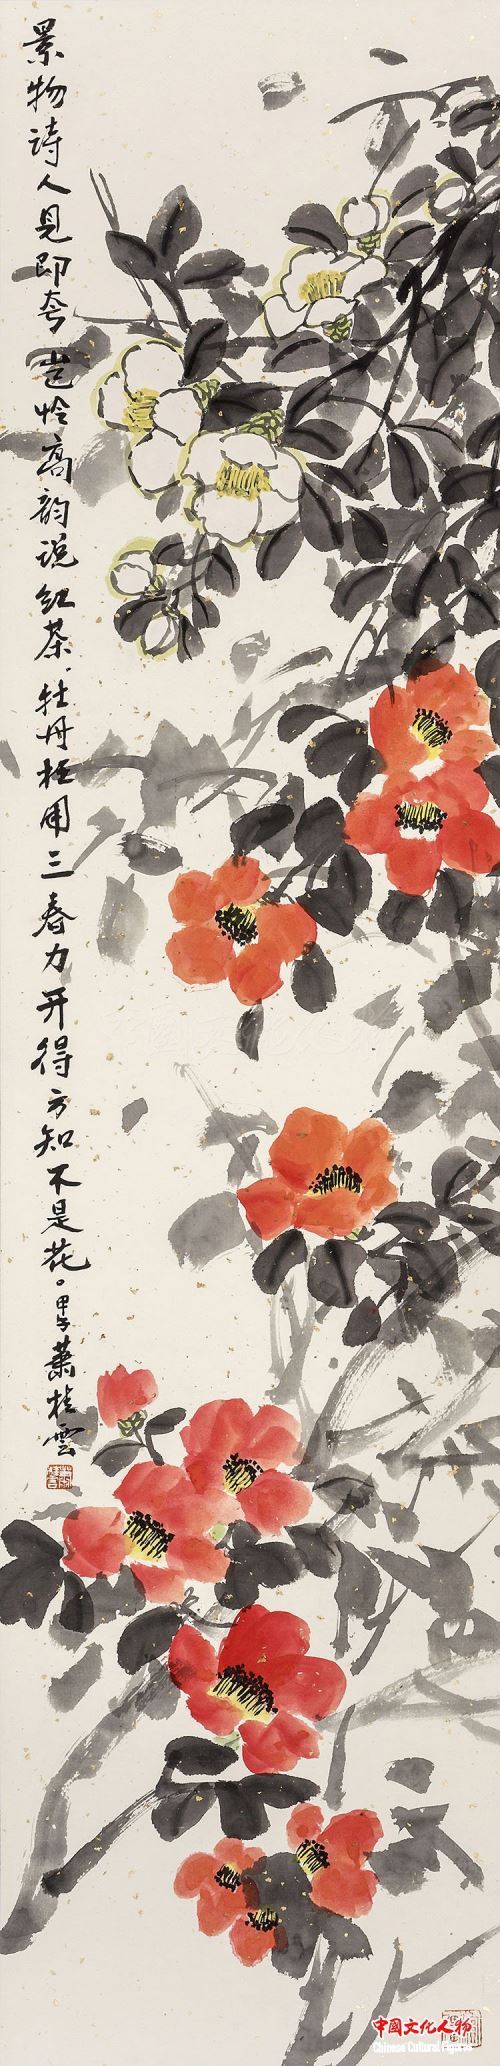 景物诗人見即夸豈怜高韵说红茶.牡丹枉用三春力开得方知不是花。甲午蕭桂雲
中國文化人物
Chinese Cultural Figures